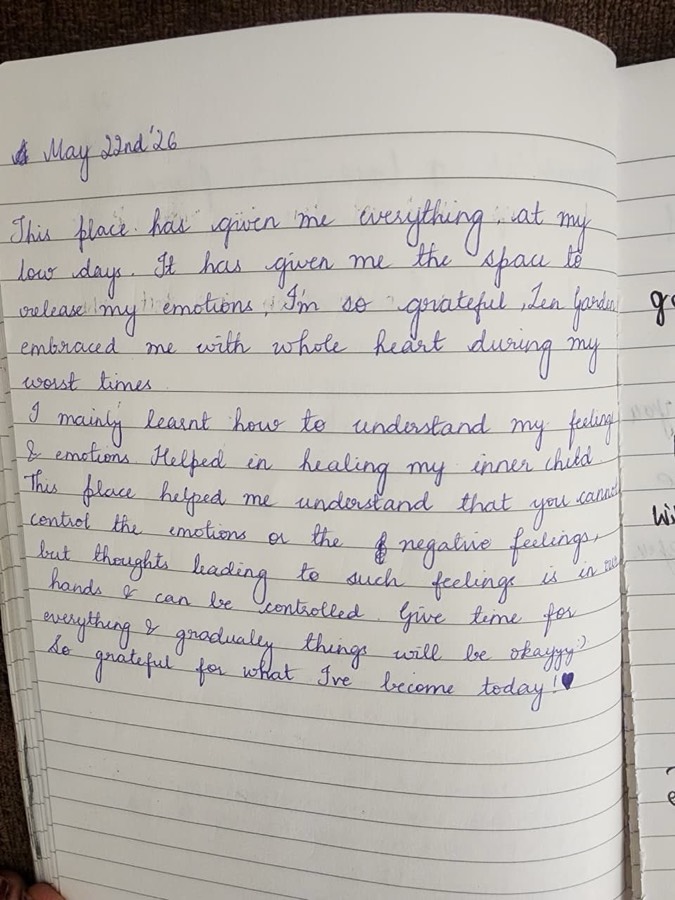 May 22nd '26
This place has given me everything, at my
low days. It has given me the space to
release my emotions, I'm so grateful, Zen Garden
embraced me with whole heart during my
worst times
I mainly learnt how to understand my feeling
& emotions. Helped in healing my inner child.
This place helped me understand that you cannot
control the emotions or the negative feelings,
but thoughts leading to such feelings is in our
hands & can be controlled. Give time for
everything & gradualey things will be okayyy:)
So grateful for what I've become today! ♥